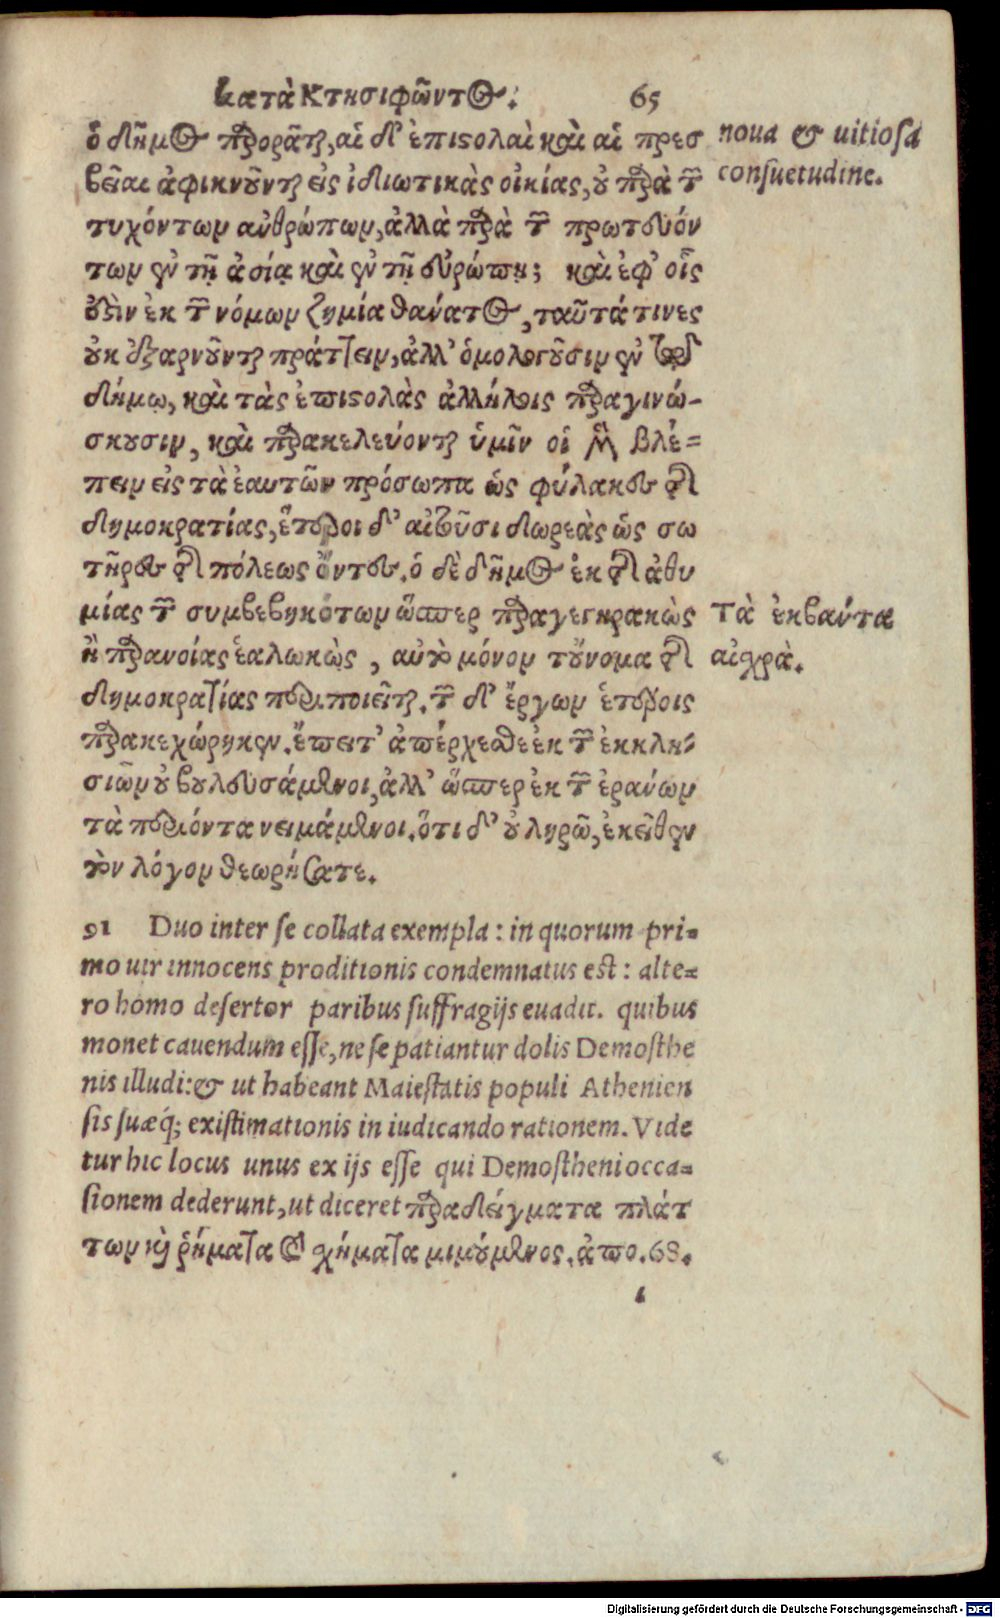 κατὰ Κτησιφῶντος. 65
ὁ δῆμος παρορᾶται, αἱ δ' ἐπιστολαὶ καὶ αἱ πρεσ
βεῖαι ἀφικνοῦνται εἰς ἰδιωτικὰς οἰκίας, οὐ παρὰ τῶν
τυχόντων ἀνθρώπων, ἀλλὰ παρὰ τῶν πρωτευόν
των ἐν τῇ ἀσίᾳ καὶ ἐν τῇ εὐρώπῃ; καὶ ἐφ' οἷς
ὅβὶν ἐκ τῶν νόμων ζημία θάνατος, ταῦτά τινες
οὐκ ἐξαρνοῦνται πράττειν, ἀλλ' ὁμολογοῦσιν ἐν τῷ
δήμῳ, καὶ τὰς ἐπιστολὰς ἀλλήλοις παραγινώ-
σκουσιν, καὶ παρακελεύονται ὑμῖν οἱ μὲν βλέ=
πειν εἰς τὰ ἑαυτῶν πρόσωπα ὡς φύλακες τῆς
δημοκρατίας, ἕτεροι δ' αἰτοῦσι δωρεὰς ὡς σω
τῆρες τῆς πόλεως ὄντες. ὁ δὲ δῆμος ἐκ τῆς ἀθυ
μίας τῶν συμβεβηκότων ὥσπερ παραγεγηρακὼς
ἢ παρανοίας ἑαλωκὼς, αὐτὸ μόνον τοὔνομα τῆς
δημοκρατίας περιποιεῖται. τῶν δ' ἔργων ἑτέροις
παρακεχώρηκεν. ἔπειτ' ἀπέρχεσθε ἐκ τῶν ἐκκλη=
σιῶν οὐ βουλευσάμενοι, ἀλλ' ὥσπερ ἐκ τῶν ἐράνων
τὰ περιόντα νειμάμενοι. ὅτι δ' οὐ ληρῶ, ἐκεῖθεν
τὸν λόγον θεωρήσατε.
noua & uitiosa
consuetudine.
Τὰ ἐκβάντα
αἰσχρὰ.
91 Duo inter se collata exempla: in quorum pri=
mo uir innocens proditionis condemnatus est: alte=
ro homo desertor paribus suffragijs euadit. quibus
monet cauendum esse, ne se patiantur dolis Demosthe
nis illudi: & ut habeant Maiestatis populi Athenien
sis suæq́; existimationis in iudicando rationem. Vide
tur hic locus unus ex ijs esse qui Demostheni occa=
sionem dederunt, ut diceret παραδείγματα πλάτ
των καὶ ῥήματα καὶ σχήματα μιμούμενος. ἀπο. 68.
ι
Digitalisierung gefördert durch die Deutsche Forschungsgemeinschaft - DFG